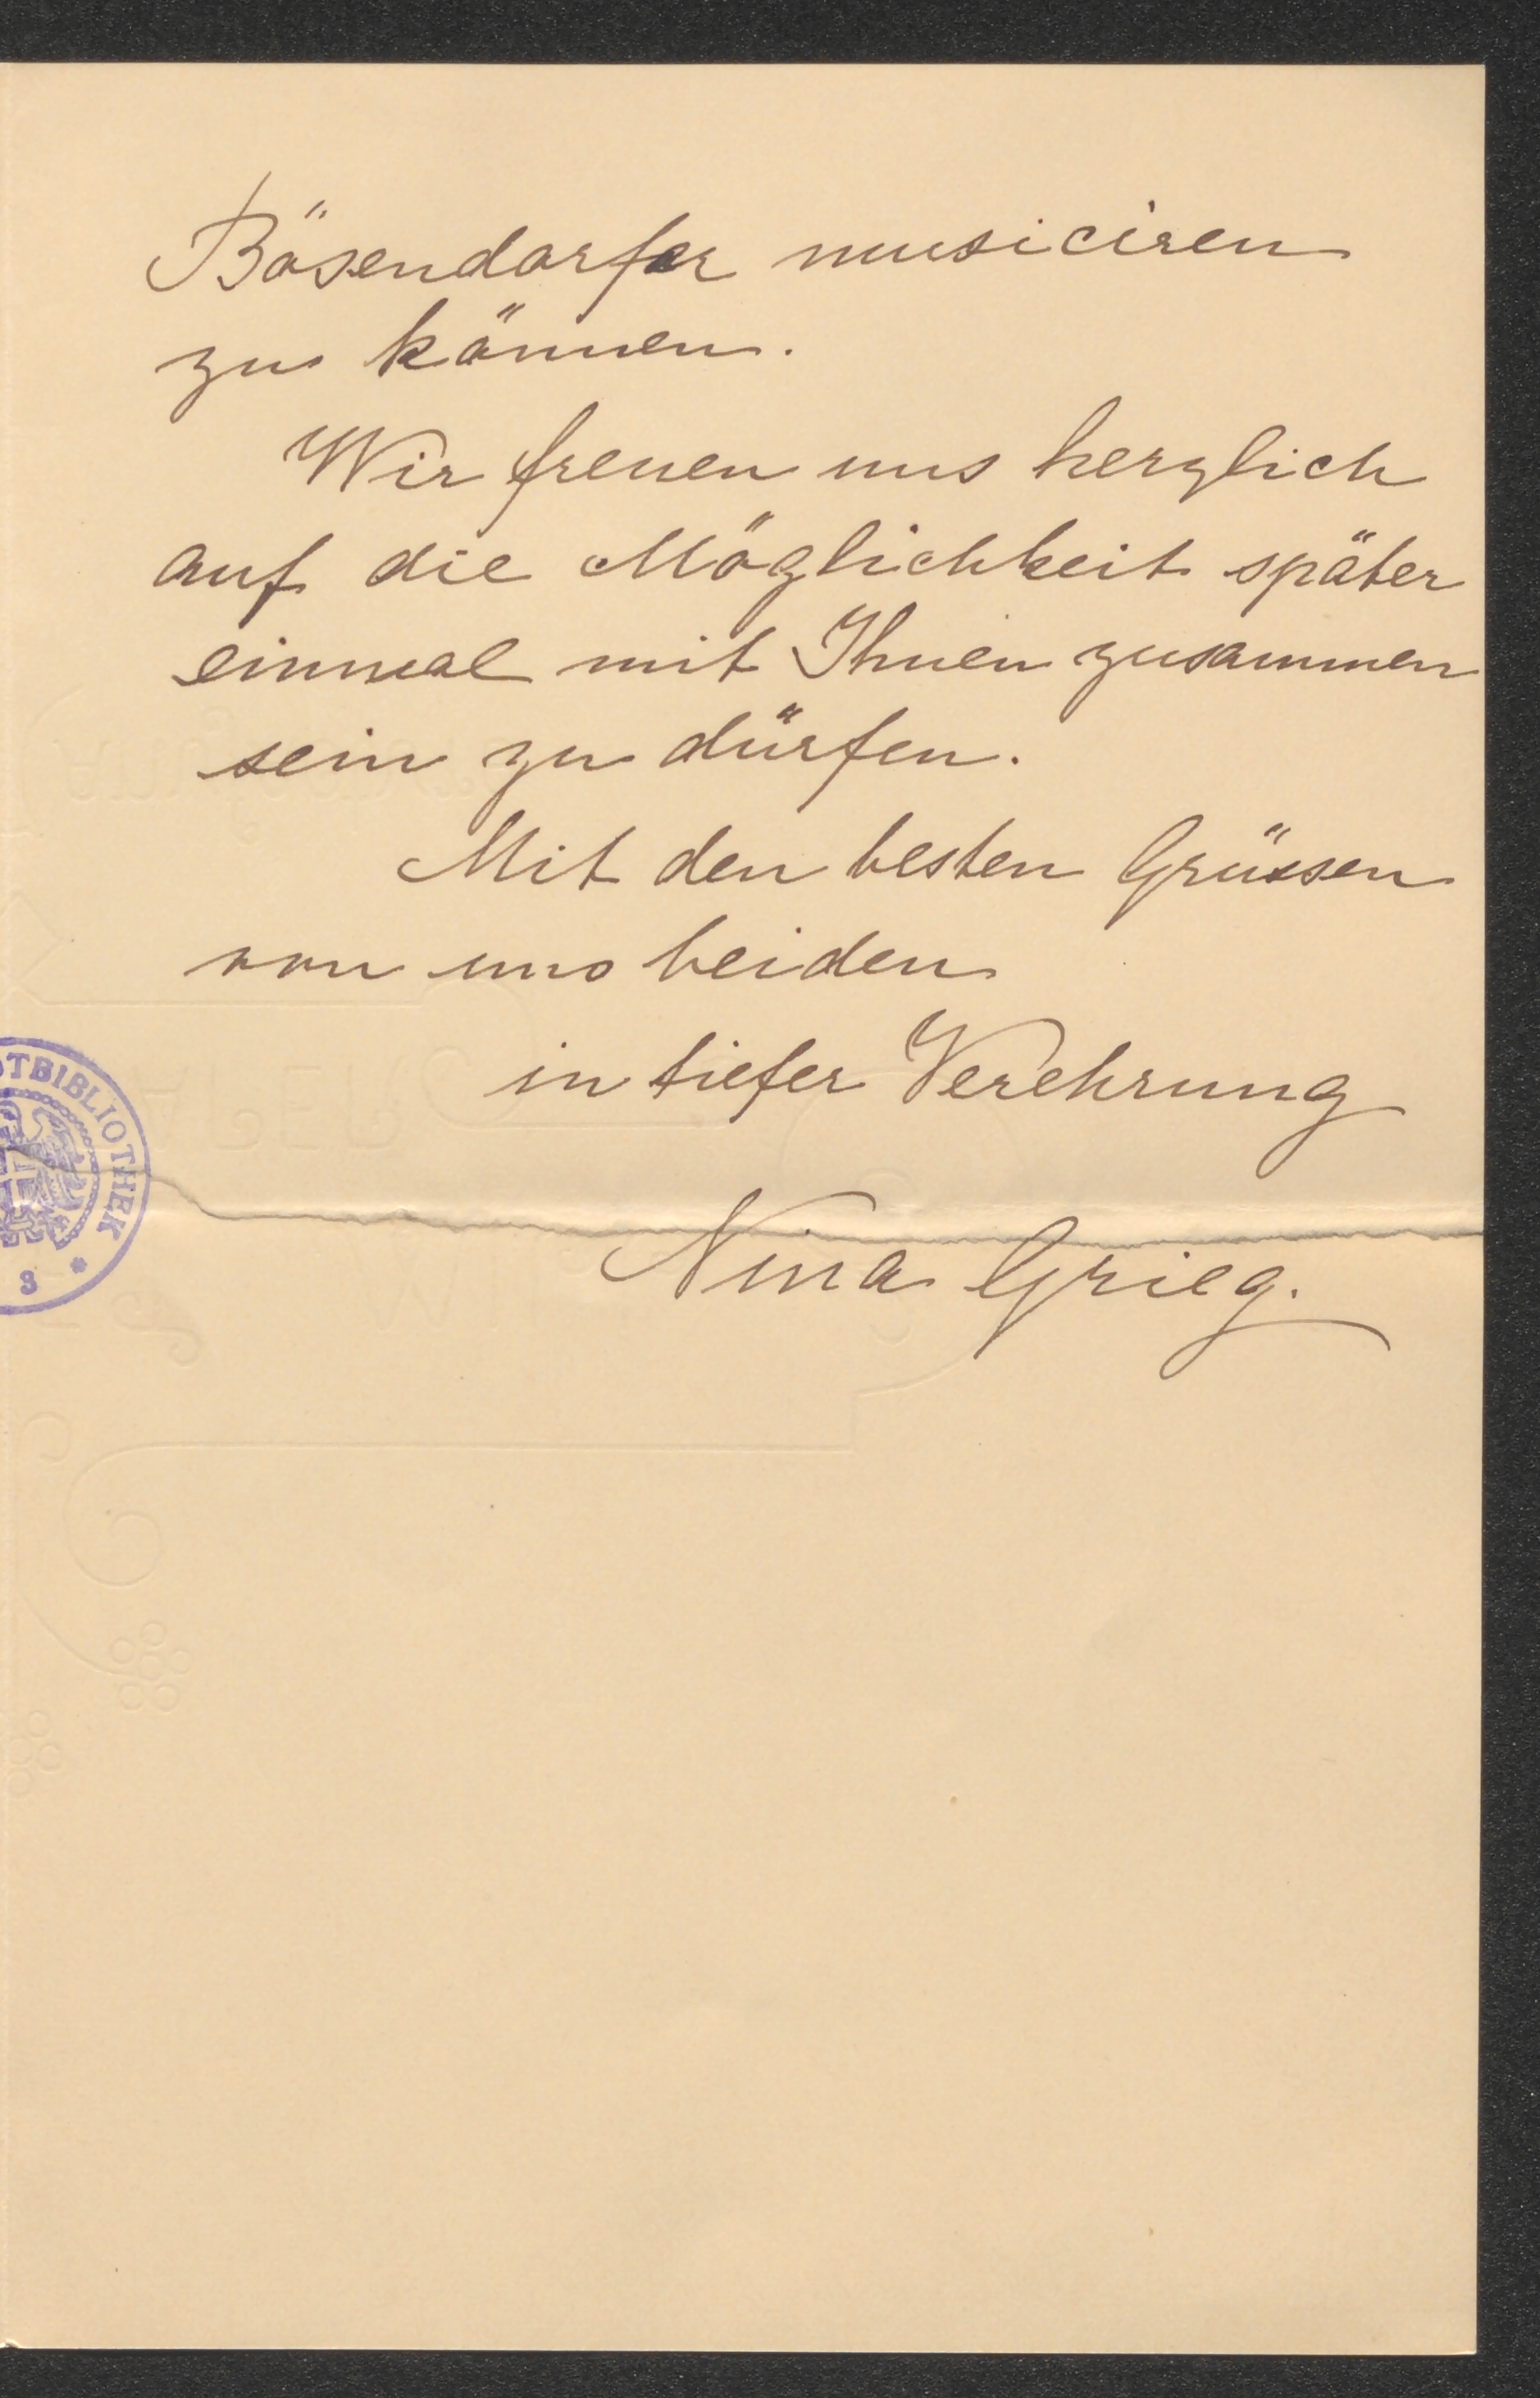 Bösendorfer musiciren
zu können.
Wir freuen uns herzlich
auf die Möglichkeit später
einmal mit Ihnen zusammen
sein zu dürfen.
Mit den besten Grüssen
von uns beiden
in tiefer Verehrung
Nina Grieg.
TBIBLIOTHEK